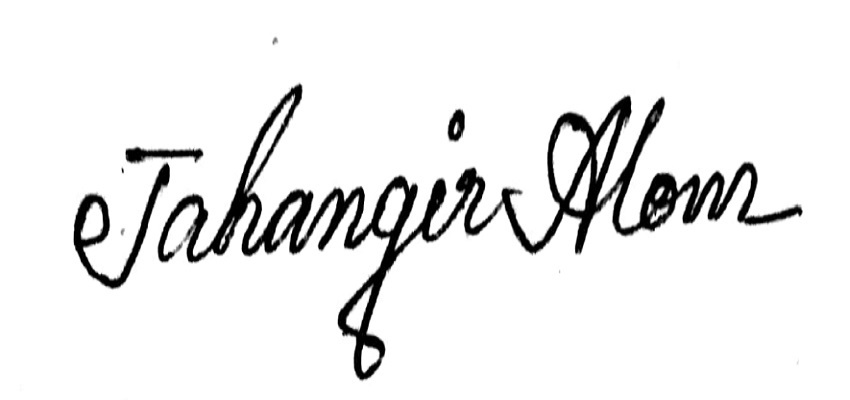 Jahangir Alom